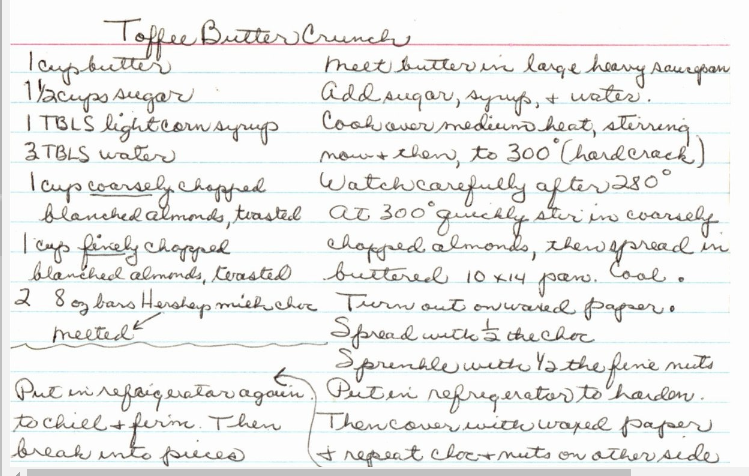 Toffee Butter Crunch
1 cup butter
1 1/2 cups sugar
1 TBLS light corn syrup
3 TBLS water
1 cup coarsely chopped
blanched almonds, toasted
1 cup finely chopped
blanched almonds, toasted
2 8 oz bars Hershey milk choc
melted
melt butter in large heavy saucepan
Add sugar, syrup, + water.
Cook over medium heat, stirring
now + then, to 300° (hard crack)
Watch carefully after 280°
At 300° quickly stir in coarsely
chopped almonds, then spread in
buttered 10 x 14 pan. Cool.
Turn out on waxed paper.
Spread with 1/2 the choc
Sprinkle with 1/2 the fine nuts
Put in refrigerator to harden.
Then cover with waxed paper
+ repeat choc + nuts on other side
Put in refrigerator again
to chill + firm. Then
break into pieces